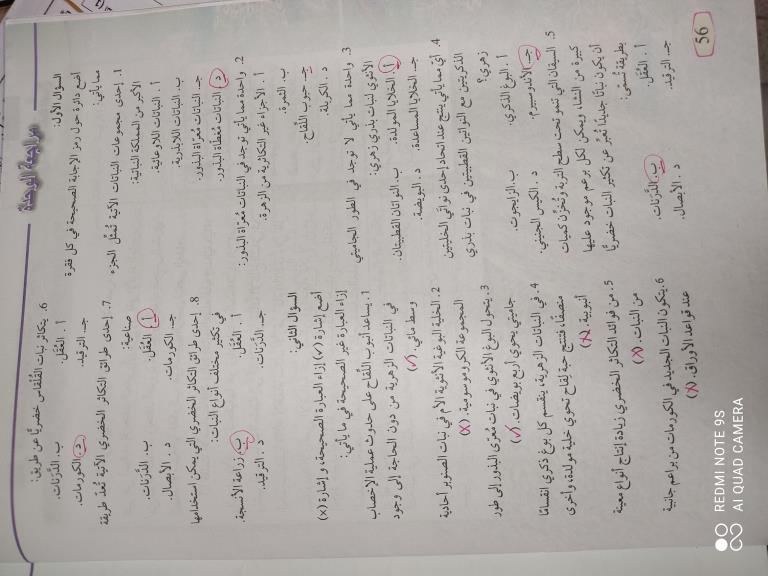 مراجعة الوحدة
السؤال الأول:
أضع دائرة حول رمز الإجابة الصحيحة في كل فقرة
مما يأتي:
1. إحدى مجموعات النباتات الآتية تُمثّل الجزء
الأكبر من المملكة النباتية:
أ . النباتات اللاوعائية.
ب. النباتات اللابذرية.
جـ. النباتات مُعرّاة البذور.
د. النباتات مُغطّاة البذور.
2. واحدة مما يأتي توجد في النباتات مُعرّاة البذور:
أ . الأجزاء غير التكاثرية من الزهرة.
ب. الثمرة.
جـ. حبوب اللقاح.
د . الكربلة.
3. واحدة مما يأتي لا توجد في الطور الجاميتي
الأنثوي لنبات بذري زهري:
أ. الخلايا المولدة.
ب. النواتان القطبيتان.
جـ. الخلايا المساعدة.
د. البويضة.
4. أيّ مما يأتي ينتج عند اتحاد إحدى نواتَي الخليتين
الذكريتين مع النواتين القطبيتين في نبات بذري
زهري؟
أ. البوغ الذكري.
ب. الزايجوت.
جـ. الأندوسبيرم.
د . الكيس الجنيني.
5. السيقان التي تنمو تحت سطح التربة وتُخزّن كميات
كبيرة من النشا، ويمكن لكل برعم موجود عليها
أن يكون نباتًا جديدًا تُعبّر عن تكثير النبات خضريًّا
بطريقة تُسمّى:
أ . العُقَل.
ب. الدَّرَنات.
جـ. الترقيد.
د . الأبصال.
56
6. يتكاثر نبات القُلقاس خضريًّا عن طريق:
أ . العُقَل.
ب. الدَّرَنات.
جـ. الترقيد.
د. الكورمات.
7. إحدى طرائق التكاثر الخضري الآتية تُعدّ طريقة
صناعية:
أ. العُقَل.
ب. الدَّرَنات.
جـ. الكورمات.
د . الأبصال.
8. إحدى طرائق التكاثر الخضري التي يمكن استخدامها
في تكثير مختلف أنواع النبات:
أ . العُقَل.
ب. زراعة الأنسجة.
جـ. الدَّرَنات.
د . الترقيد.
السؤال الثاني:
أضع إشارة (✓) إزاء العبارة الصحيحة، و إشارة (x)
إزاء العبارة غير الصحيحة في ما يأتي:
1. يساعد أنبوب اللقاح على حدوث عملية الإخصاب
في النباتات الزهرية من دون الحاجة إلى وجود
وسط مائي. (✓)
2. الخلية البوغية الأنثوية الأم في نبات الصنوبر أحادية
المجموعة الكروموسومية. (x)
3. يتحول البوغ الأنثوي في نبات مُعرّى البذور إلى طور
جاميتي يحوي أربع بويضات. (✓)
4. في النباتات الزهرية، ينقسم كل بوغ ذكري انقسامًا
منصفًا، فتنتج حبة لقاح تحوي خلية مولدة، وأخرى
أنبوبية (x)
5. من فوائد التكاثر الخضري زيادة إنتاج أنواع معينة
من النبات. (x)
6. يتكون النبات الجديد في الكورمات من براعم جانبية
عند قواعد الأوراق. (x)
REDMI NOTE 9S
AI QUAD CAMERA